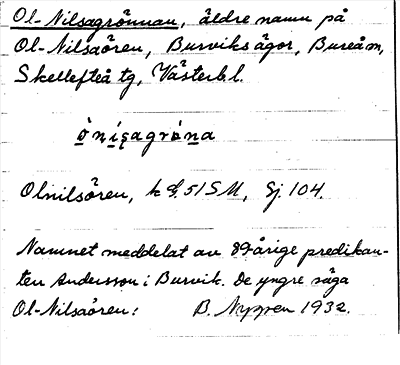 Ol-Nilsagrönnan, äldre namn på
Ol-Nilsaören, Burviks ägor, Bureå m,
Skellefteå tg, Västerbl.
ònisagròna
Olnilsören, k G. 51 SM, Sj. 104.
Namnet meddelat av 89-årige predikan-
ten Andersson i Burvik. De yngre säga
Ol-Nilsaören: B. Nyppen 1932